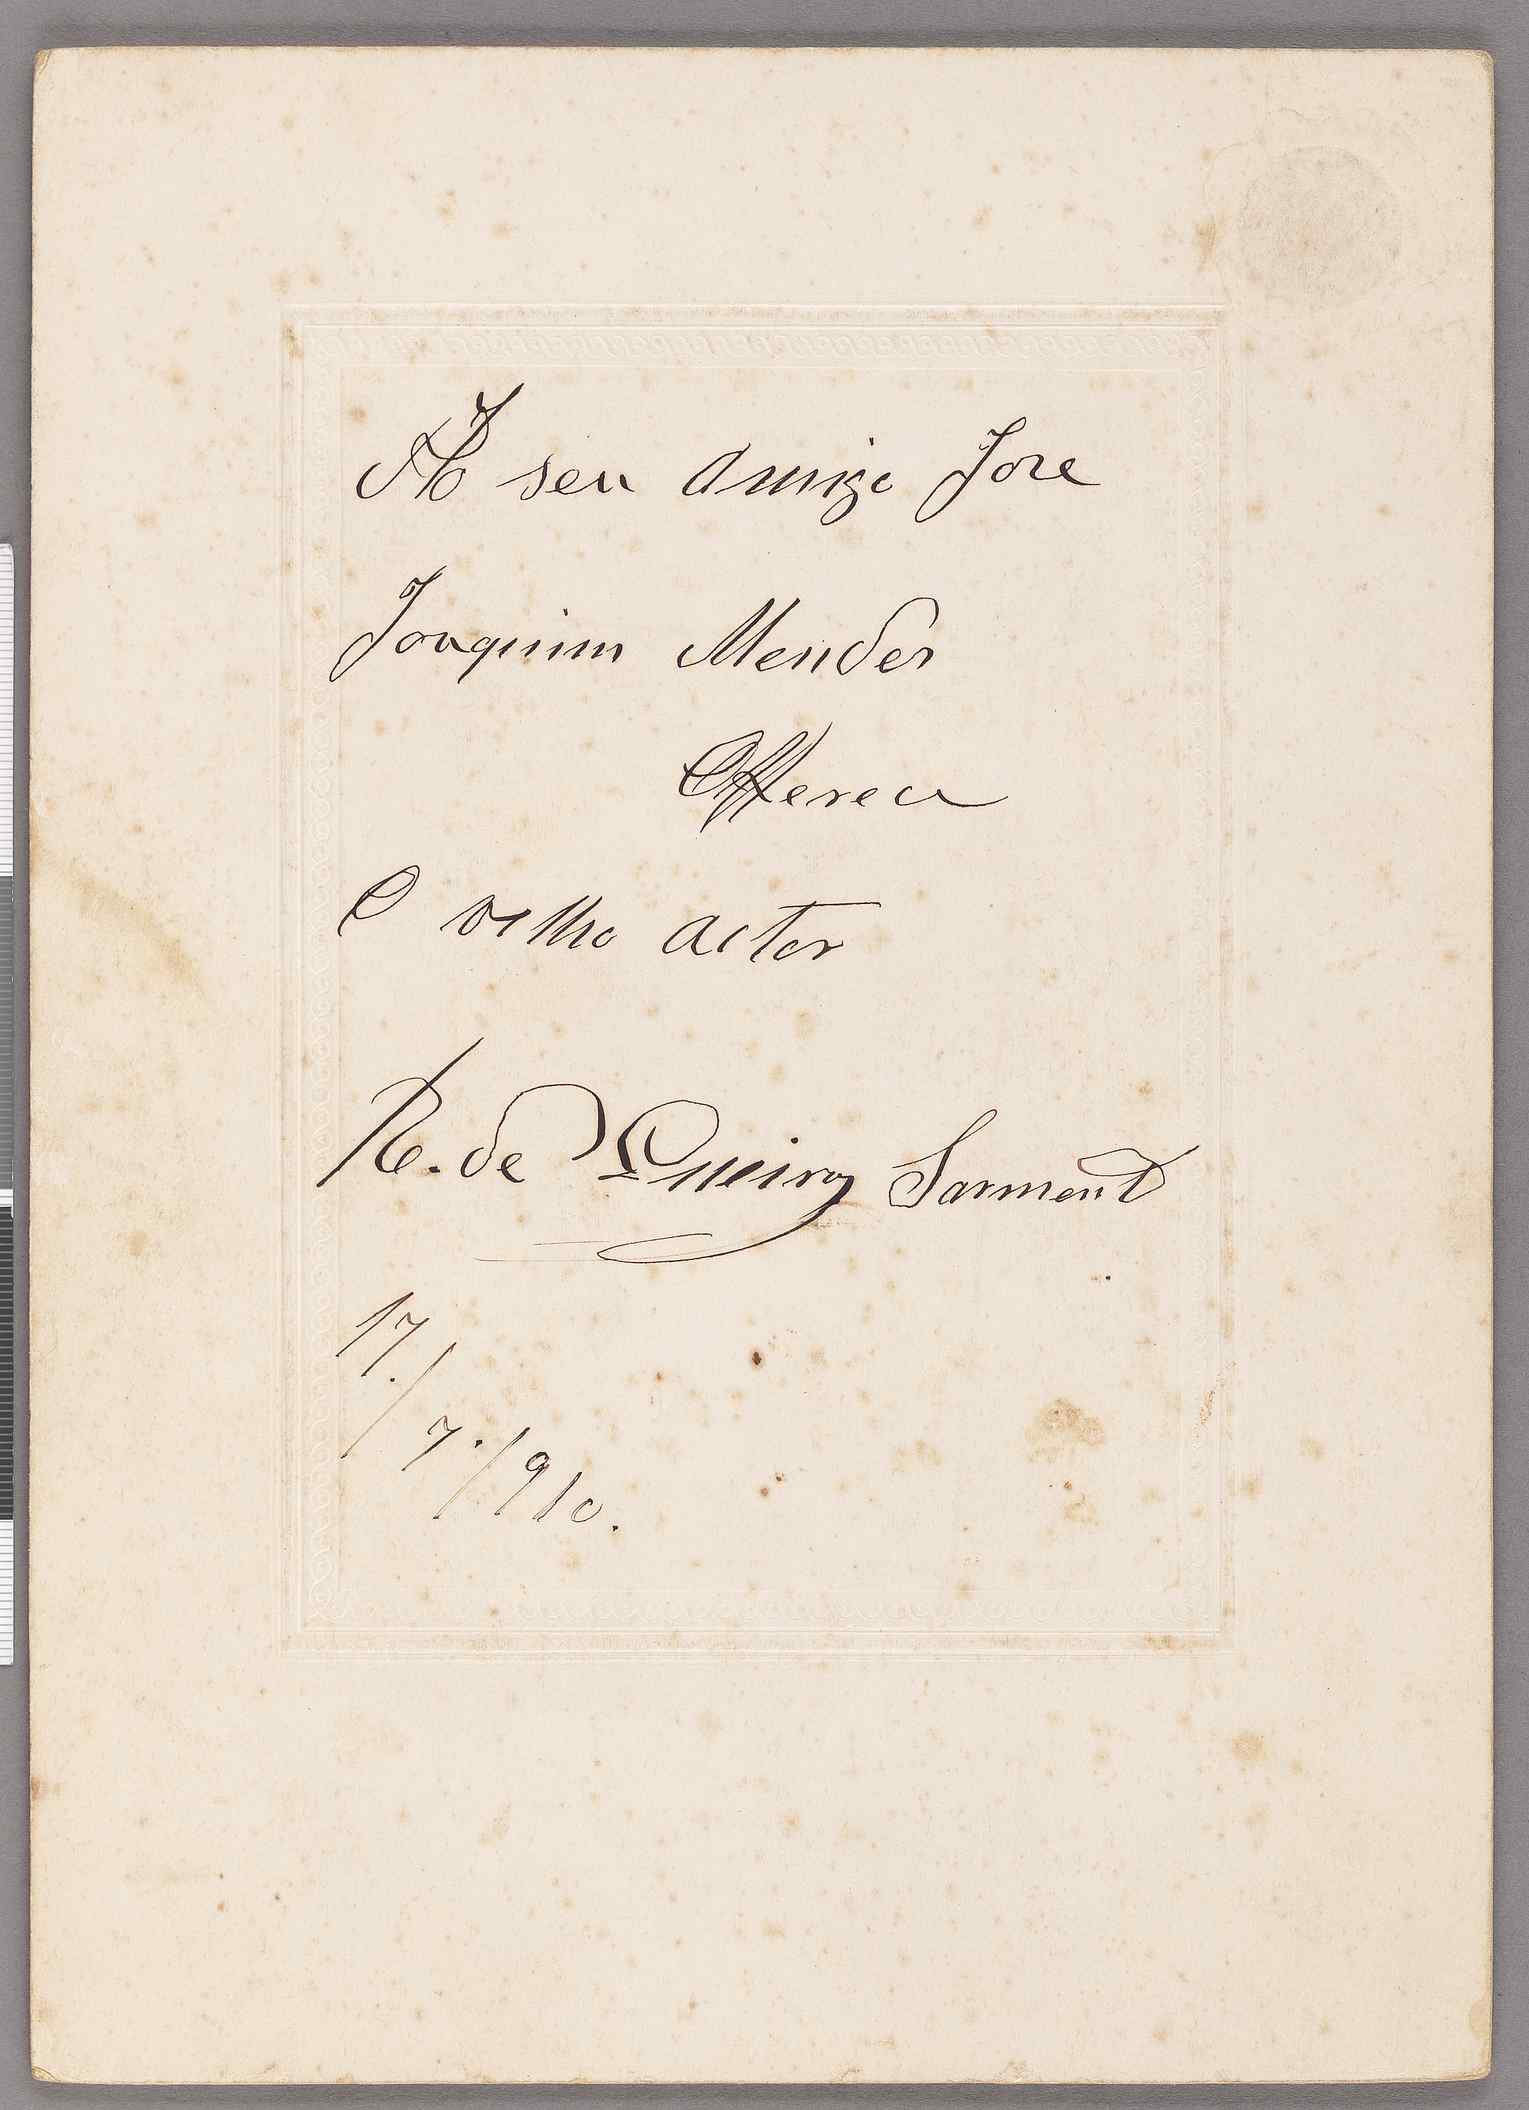 Ao seu amigo Jose
Joaquim Mendes
Offerece
O velho actor
R. de Queiroz Sarmento
17./7./910.